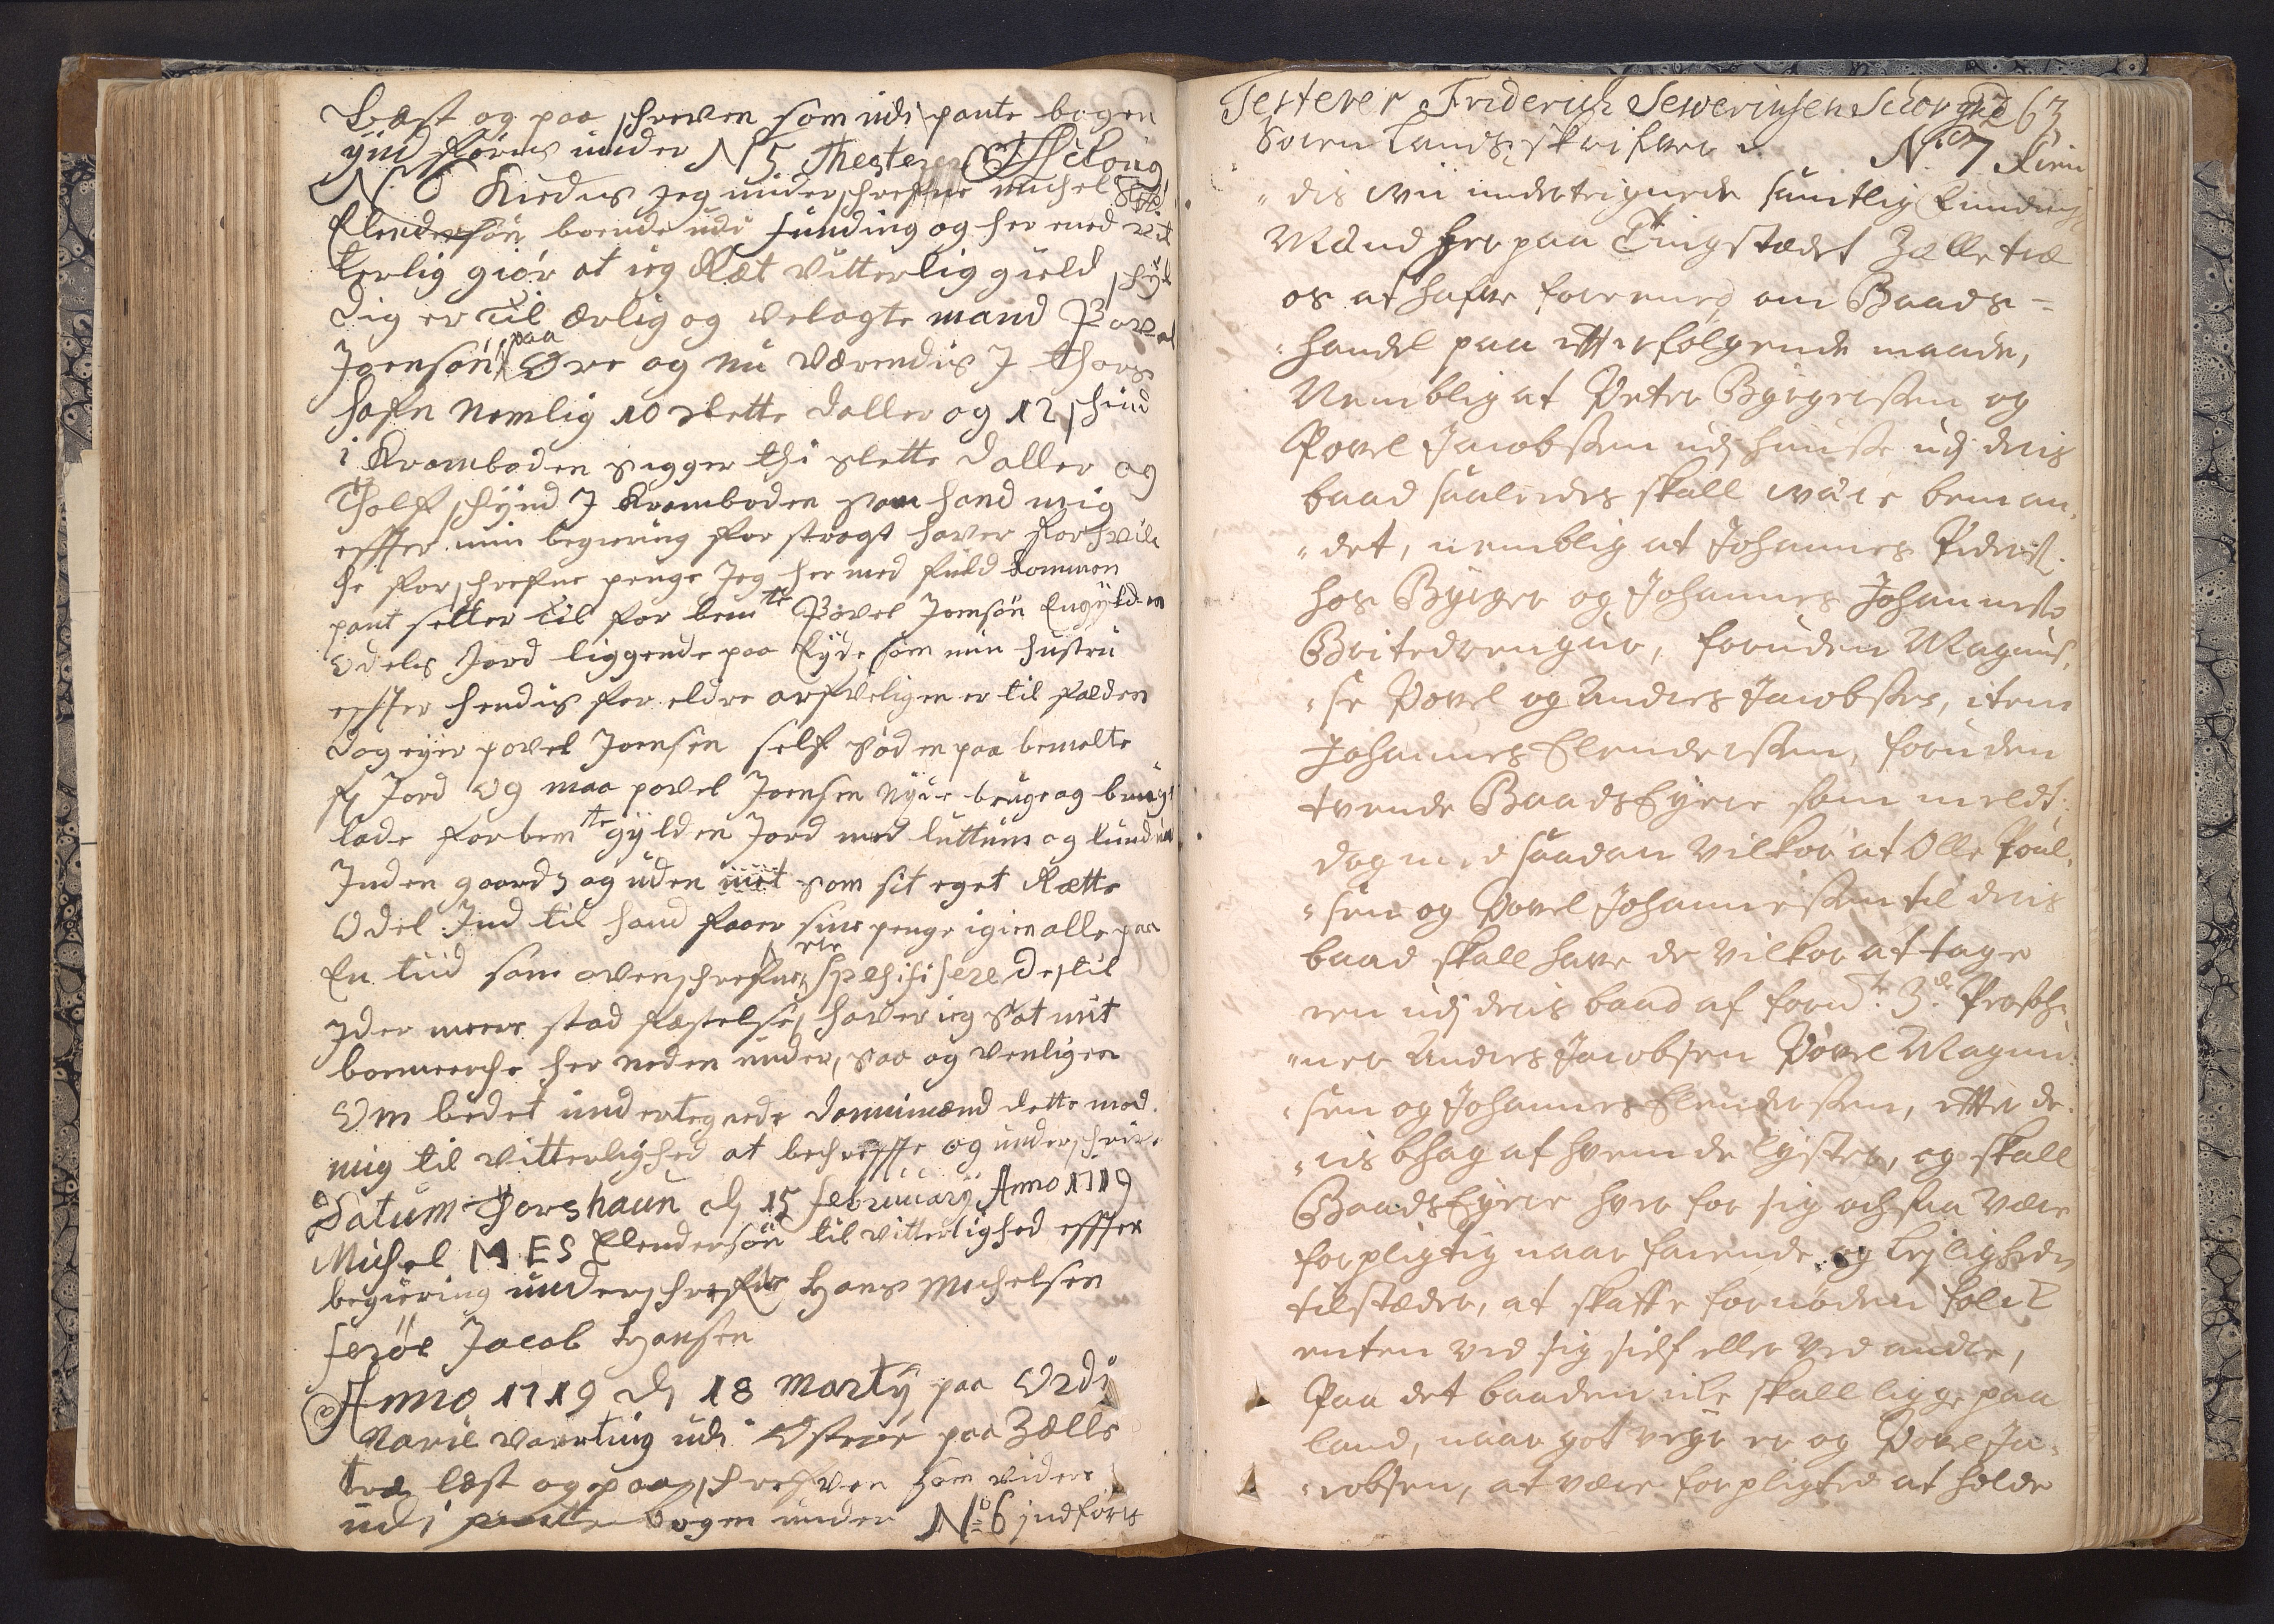 Læst og paa schreven som udi pante bogen
ind føres under N 5 Thesterer
N. 6 Kiedes jeg underschrefne Michel
Elendersön boende udi funding og her med vit
terlig giör at ieg Ræt vitterlig gield schyl
dig er til ærlig og velagte mand Povel
Joensön paa Øre og nu værendis J Thors
hafn Nemlig 10 slette daller og 12 schind
i Kramboden sigger thi slette daller og
Tholf schynd J Kramboden som hand mig
effter min begiering for stragt haver for hvilc
he forschrefne penge Jeg her med fuld kommen
pant setter til for bemte Povel Joensön En gylden
Odels Jord liggende paa Eyde som min hustru
effter hendis for eldre arfveligen er til falden
dog eyer povel Joensen self paa bemelte
Jord og maa povel Joensen Nyde bruge og beneg
lade forbemte gylden Jord med luttum og lunden
Inden gaards og uden intet som sit eget Rætte
Odel Ind til hand faaer sine penge igien alle paa
En tiid som ovenschrefne spesifisere des til
yder meere stad fæstelse haver ieg sat mit
bomerche her neden under, saa og venligen
Om bedet undertegnede dannimænd dette med
mig til vitterlighed at bechreffte og underschrive
Datum Thorshaun d 15 februuarij Anno 1719
Michel M E S Elendersön til vitterlighed effter
begiering underschrefne Hans Michelsen
ferøe Jacob Hansen
Anno 1719 d 18 martij paa Ordi
Narie Vaarting udi Østerøe paa Zælle
træ læst og paaschrefven som videre
udi pante bogen under No 6 jndføris
Testerer Friderich Sewerinsen Schougaard 63
Soren Landsskrifver. No 7 Kien
dis wii undertegnede samtlig Funding
Mænd her paa Tingstædet Zælletræ
os at hafve foreened om Baads-
handel paa efterfølgende maade,
Nemblig at Peter Byrgersen og
Povel Jacobsen udj hunse udj deris
baad saaledes skall wære beman,
det, nemblig at Johannes Peders.
hos Byrger og Johannes Johannes
Britedrengur, foruden Magnus,
se Povel og Andres Jacobsen, item
Johannes Elendersen, foruden
tvende Baads Eyere som meldt:
dog med saadan Vilkor at Olle Poul,
sen og Povel Johannesen til deris
baad skall have de vilkor at tage
een udj deris baad af fornte 3de Persoh,
ner Andres Jacobsen Povel Magnu,
sen og Johannes Elendersen, efter de,
ris bhag af hvem de lyster, og skall
Baads Eyere hver for sig ochsaa være
forpligtig naar faerende og Lejligheden
tilstæder, at skaffe fornøden folck
enten ved sig sielf eller ved andre,
Paa det baaden icke skall ligge paa
land, naar got vejr er og Povel Ja,
cobsen, at være forpligted at holde